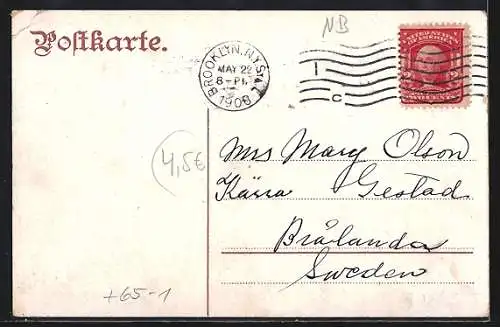 Postkarte.
NB
BROOKLYN, N.Y. STA.
MAY 22
8-PM
1908
C
UNITED STATES
OF AMERICA
2 2
TWO CENTS
4,5€
Mrs Mary Olson
Kärra Gestad
Brålanda
Sweden
+65-1